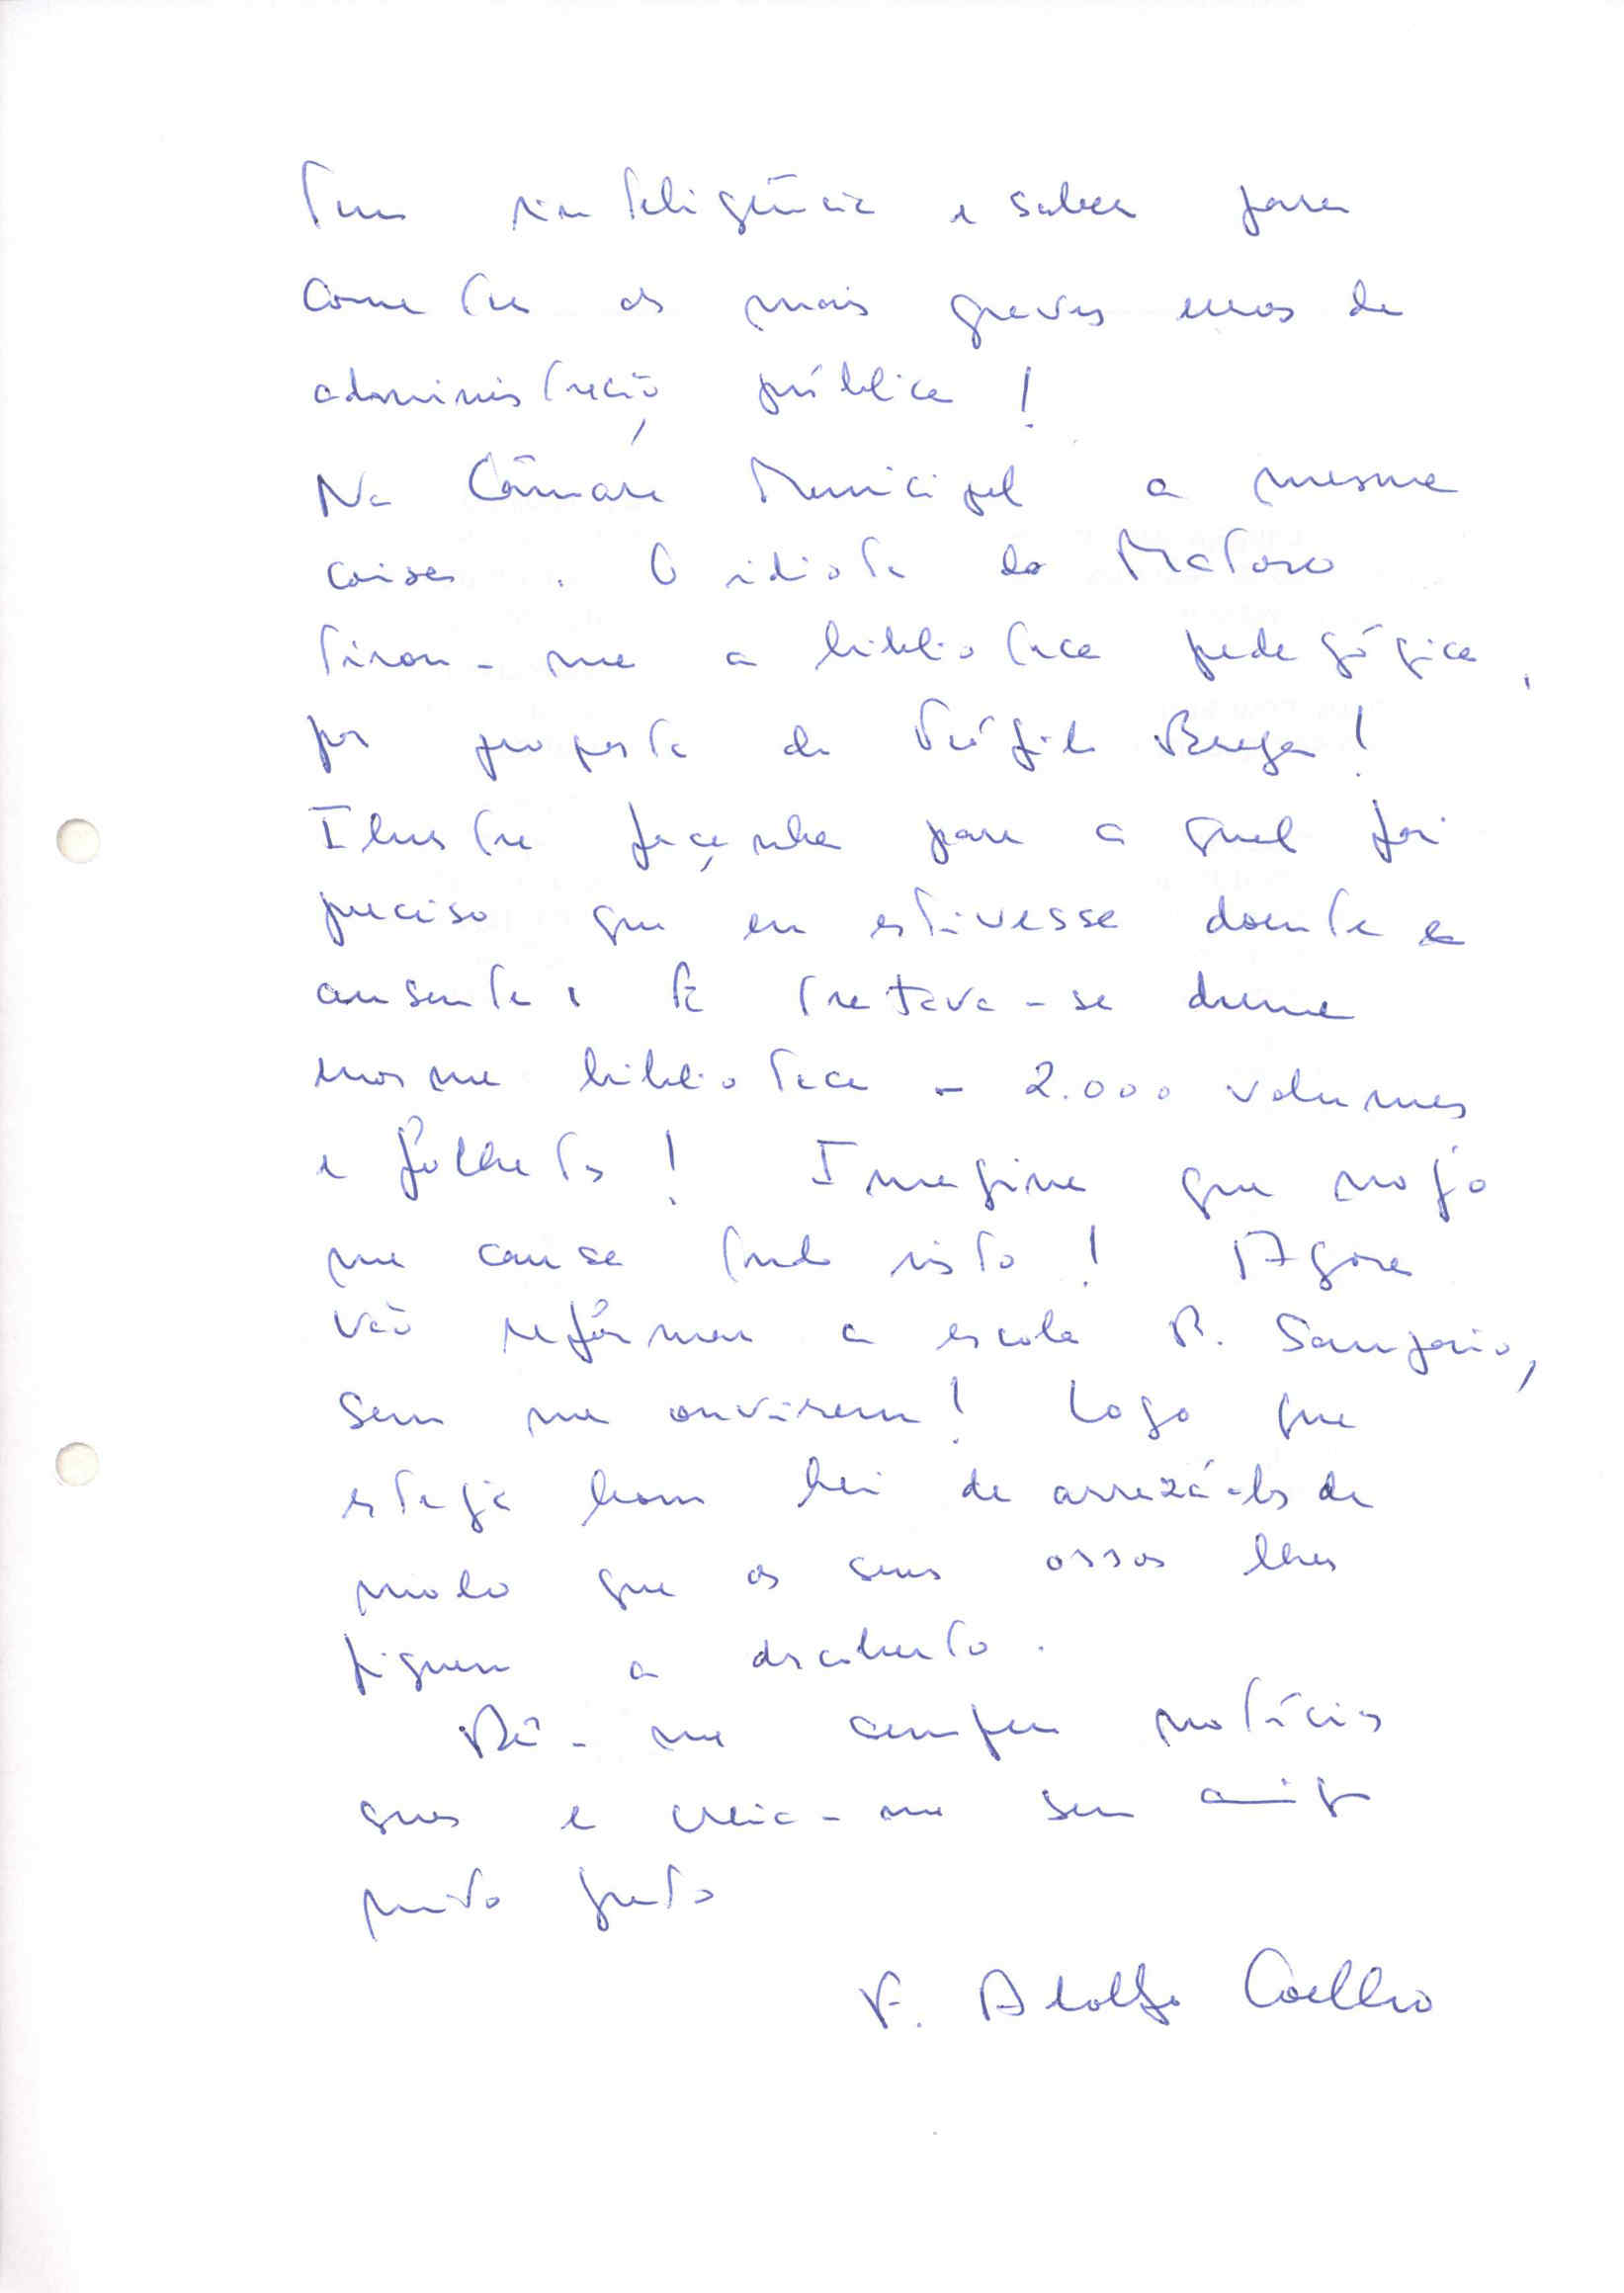 Tem inteligência e saber para
cometer os mais graves erros de
administração pública!
Na Câmara Municipal a mesma
coisa. O idiota do Matoso
tirou-me a biblioteca pedagógica,
por proposta de Teófilo Braga!
Ilustre façanha para a qual foi
preciso que eu estivesse doente e
ausente. E tratava-se duma
enorme biblioteca - 2.000 volumes
e folhetos! Imagine que nojo
me causa tudo isto! Agora
vão reformar a escola R. Sampaio,
sem me ouvirem! Logo que
esteja bom hei de arrazá-los de
modo que os seus ossos lhes
fiquem a descoberto.
Dê-me sempre notícias
suas e creia-me seu amigo
muito grato
F. Adolfo Coelho